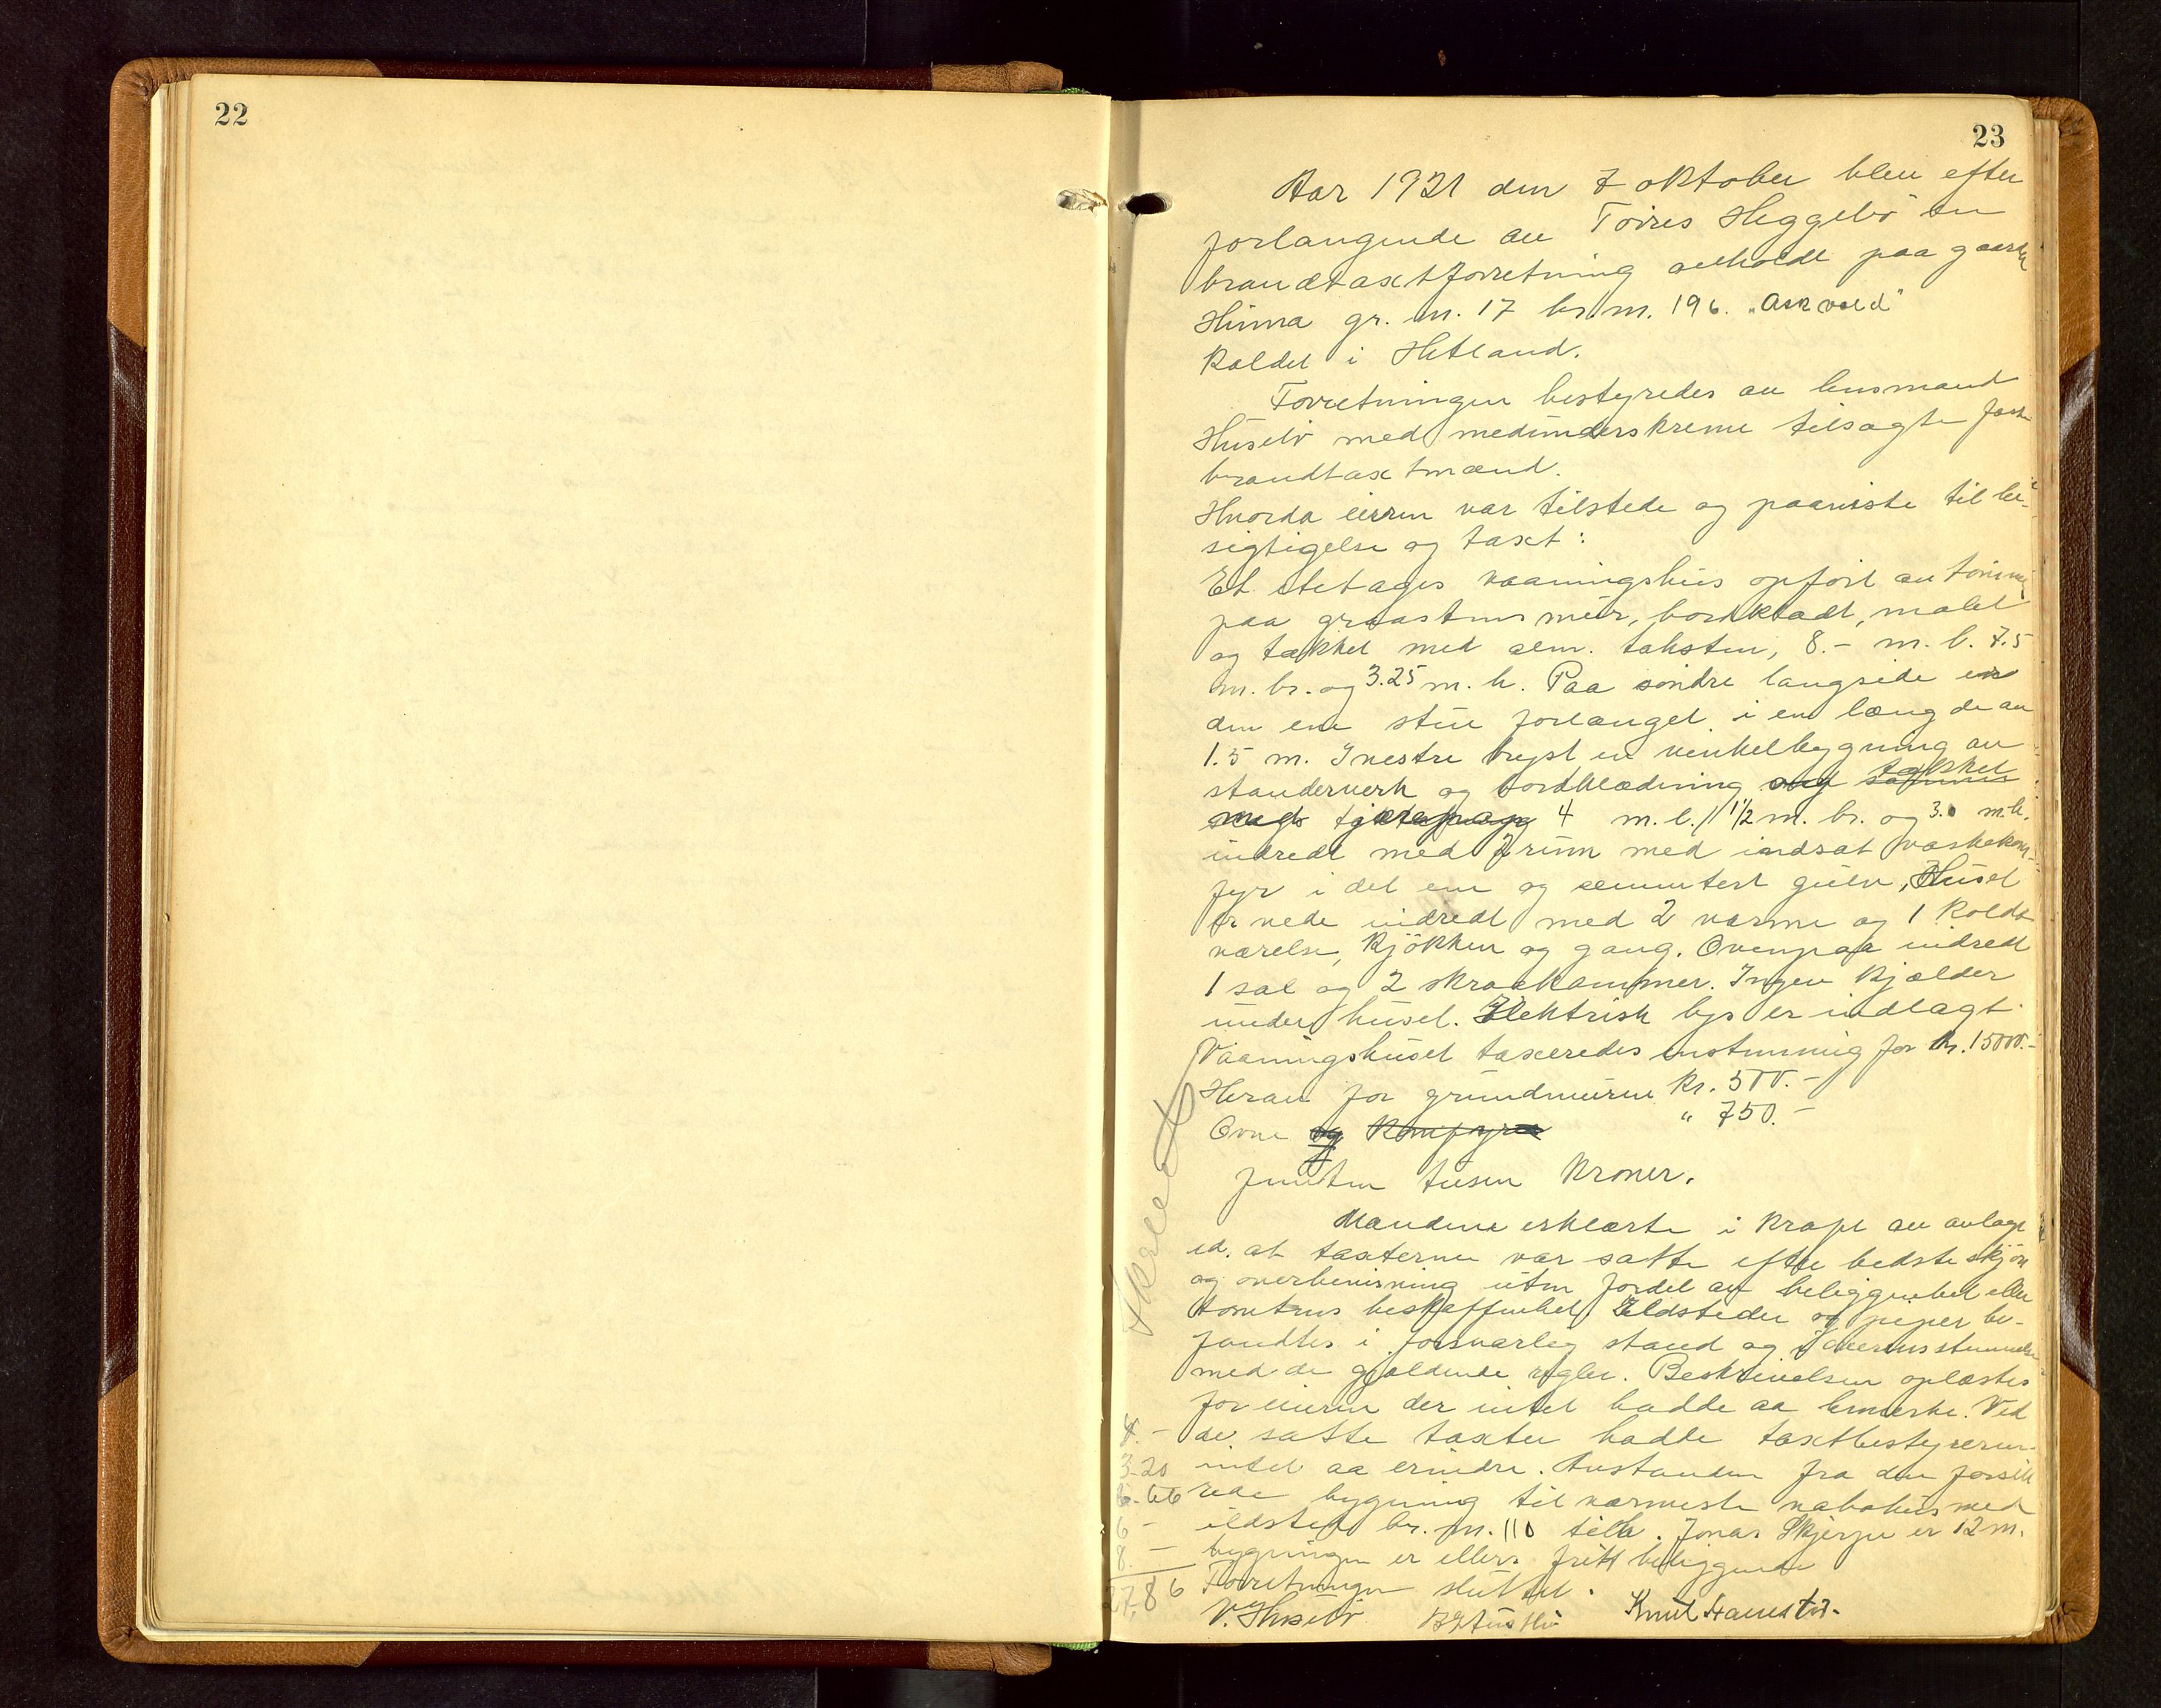 22
23
Aar 1921 den 7 oktober blev efter
forlangende av Torres Heggebö en
brandtaxtforretning avholdt paa gaarden
Hinna gr. nr. 17 br. nr. 196. "Askvold"
kaldet i Hetland.
Forretningen bestyredes av lensmand
Husebö med medunderskrevne tilsagte faste
brandtaxtmænd.
Hvorda eieren var tilstede og paaviste til be-
sigtigelse og taxt:
Et etetages vaaningshus opfört av tömmer
paa graastensmur, bordklædt, malet
og tækket med alm. taksten, 8.- m. l. 7.5
m. br. og 3.25 m. h. Paa söndre langside er
den ene stue forlænget i en længde av
1.5 m. I vestre bryst en vinkelbygning av
standerverk og bordklædning og tækket
med tjærepap 4 m. l. 1 1/2 m. br. og 3.0 m. h.
indredt med 2 rum med indsat vaskekom-
fyr i det ene og cementert gulv, Huset
er nede indredt med 2 varme og 1 koldt
værelse, kjökken og gang. Ovenpaa indredt
1 sal og 2 skraakammer. Ingen kjælder
under huset. Elektrisk lys er indlagt.
Vaaningshuset taxeredes enstemmig for kr. 15000.-
Herav for grundmuren kr. 500.-
Ovne og komfyrer " 750.-
femten tusen kroner.
Mændene erklærte i kraft av avlagt
ed, at taxterne var satte efter bedste skjön
og overbevisning uten fordel av beliggenhet eller
tomtens beskaffenhet Ildsteder og piper be-
fandtes i forsvarlig stand og i overensstemmelse
med de gjældende regler. Beskrivelsen oplæstes
for eieren der intet hadde aa bemerke. Ved
de satte taxter hadde taxtbestyreren
intet aa erindre. Avstanden fra den forsik
rede bygning til nærmeste nabohus med
ildsted br. nr. 110 tilh. Jonas Skjerpe er 12 m.
bygningen er ellers frit beliggende
Forretningen sluttet.
V. Husebö Knut Haurstad.
3.20
6.66
6 -
8. -
27,86